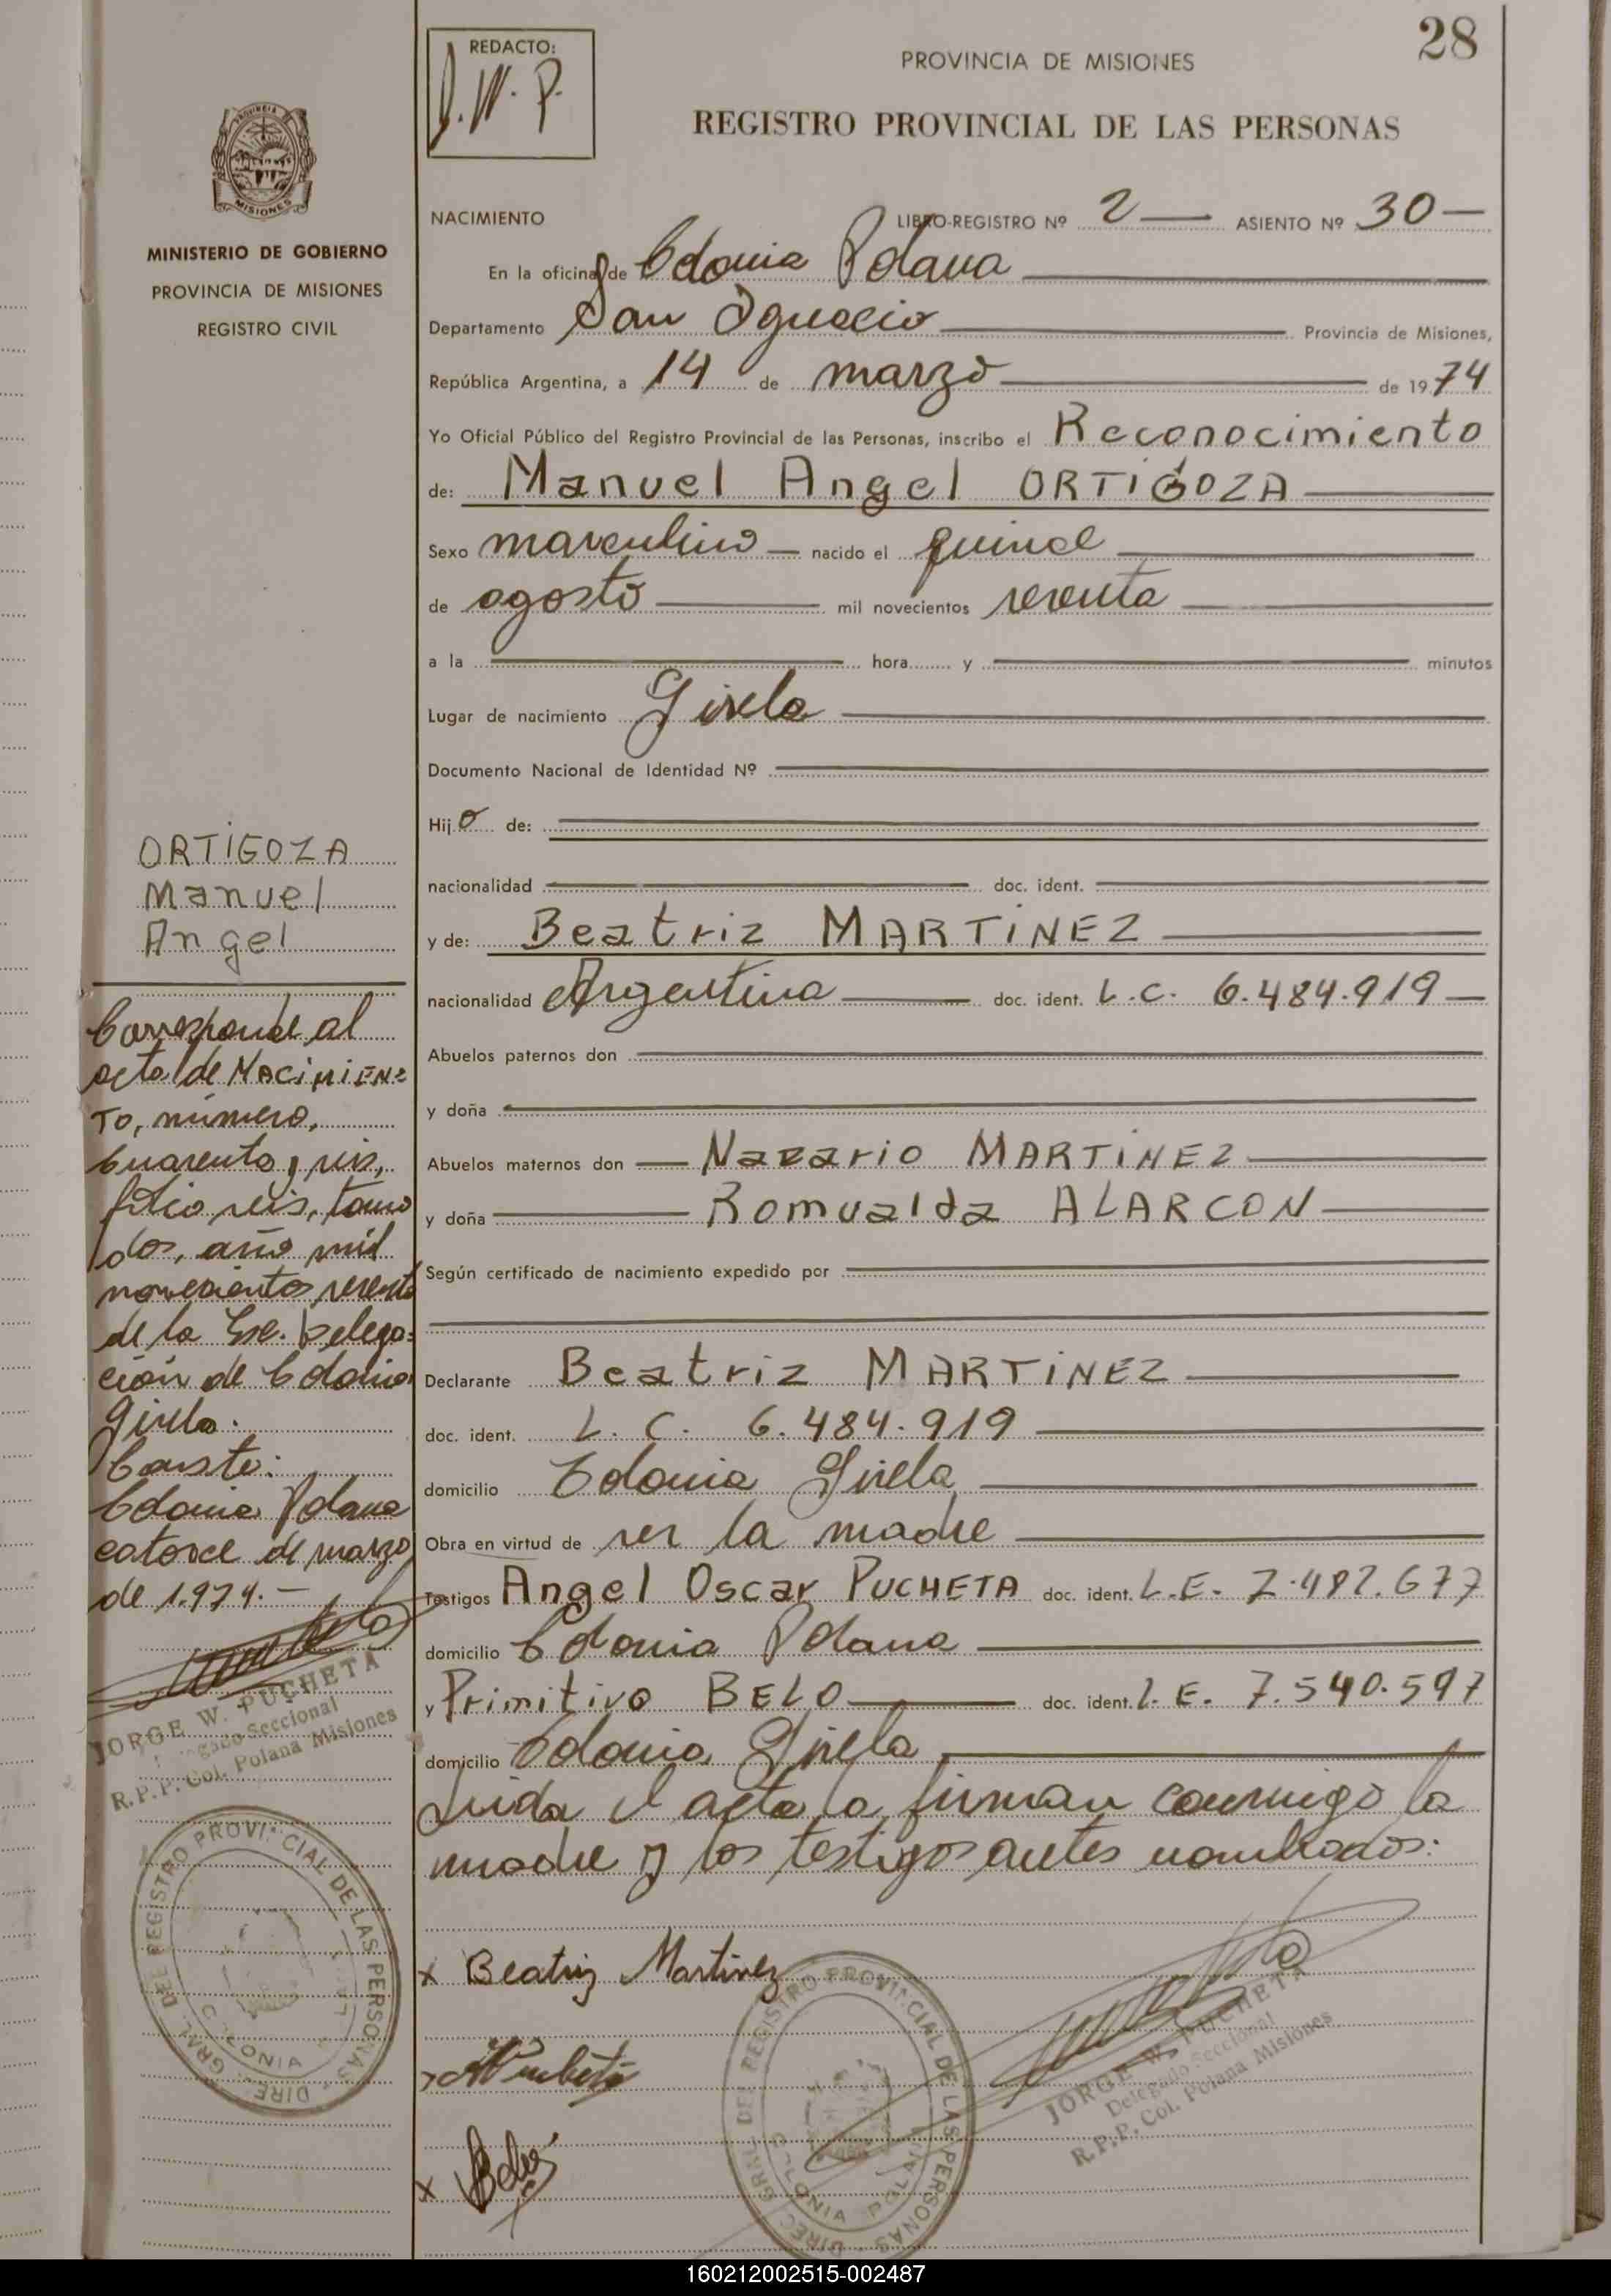 28
REDACTO:
J. W. P.
PROVINCIA DE MISIONES
REGISTRO PROVINCIAL DE LAS PERSONAS
MISIONES
MINISTERIO DE GOBIERNO
PROVINCIA DE MISIONES
REGISTRO CIVIL
NACIMIENTO LIBRO-REGISTRO Nº 2 — ASIENTO Nº 30 —
En la oficina de Colonia Polana
Departamento San Ignacio Provincia de Misiones,
República Argentina, a 14 de marzo de 1974
Yo Oficial Público del Registro Provincial de las Personas, inscribo el Reconocimiento
de: Manuel Angel ORTIGOZA
Sexo masculino — nacido el quince
de agosto mil novecientos sesenta
a la hora y minutos
Lugar de nacimiento Gisela
Documento Nacional de Identidad Nº
Hijo de:
nacionalidad doc. ident.
y de: Beatriz MARTINEZ
nacionalidad Argentina doc. ident. L.C. 6.484.919 —
Abuelos paternos don
y doña
Abuelos maternos don — Nazario MARTINEZ
y doña Romualda ALARCON
Según certificado de nacimiento expedido por
Declarante Beatriz MARTINEZ
doc. ident. L. C. 6.484.919
domicilio Colonia Gisela
Obra en virtud de ser la madre
Testigos Angel Oscar PUCHETA doc. ident. L.E. 7.482.677
domicilio Colonia Polana
y Primitivo BELO doc. ident. L. E. 7.540.597
domicilio Colonia Gisela
Leida el acta la firman conmigo la
madre y los testigos antes nombrados:
x Beatriz Martinez
x Belo
JORGE W. PUCHETA
Delegado Seccional
R.P.P. Col. Polana Misiones
DIREC. GRAL. DEL REGISTRO PROVINCIAL DE LAS PERSONAS
COLONIA POLANA
ORTIGOZA
Manuel
Angel
Corresponde al
acta de NACIMIEN=
TO, número,
cuarenta y seis,
folio seis, tomo
dos, año mil
novecientos sesenta
de la Delega=
ción de Colonia
Gisela.
Conste:
Colonia Polana
catorce de marzo
de 1.974.—
JORGE W. PUCHETA
Delegado Seccional
R.P.P. Col. Polana Misiones
DIREC. GRAL. DEL REGISTRO PROVINCIAL DE LAS PERSONAS
COLONIA
160212002515-002487